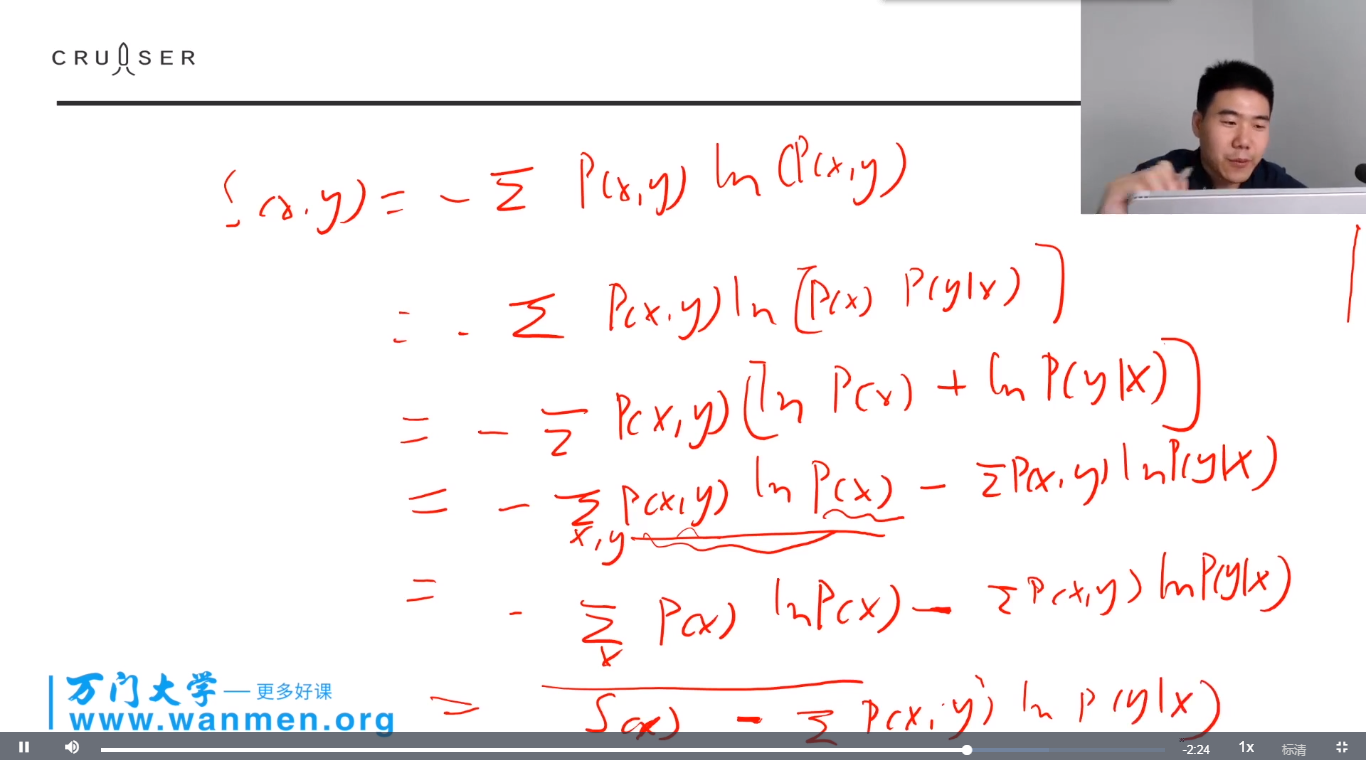 CRUISER
S(x,y) = - Σ P(x,y) ln (P(x,y)
= - Σ P(x,y) ln [P(x) P(y|x)]
= - Σ P(x,y) [ln P(x) + ln P(y|x)]
= - Σ P(x,y) ln P(x) - Σ P(x,y) ln P(y|x)
x,y
= - Σ P(x) ln P(x) - Σ P(x,y) ln P(y|x)
x
= S(x) - Σ P(x,y) ln P(y|x)
万门大学 — 更多好课
www.wanmen.org
-2:24 1x 标清